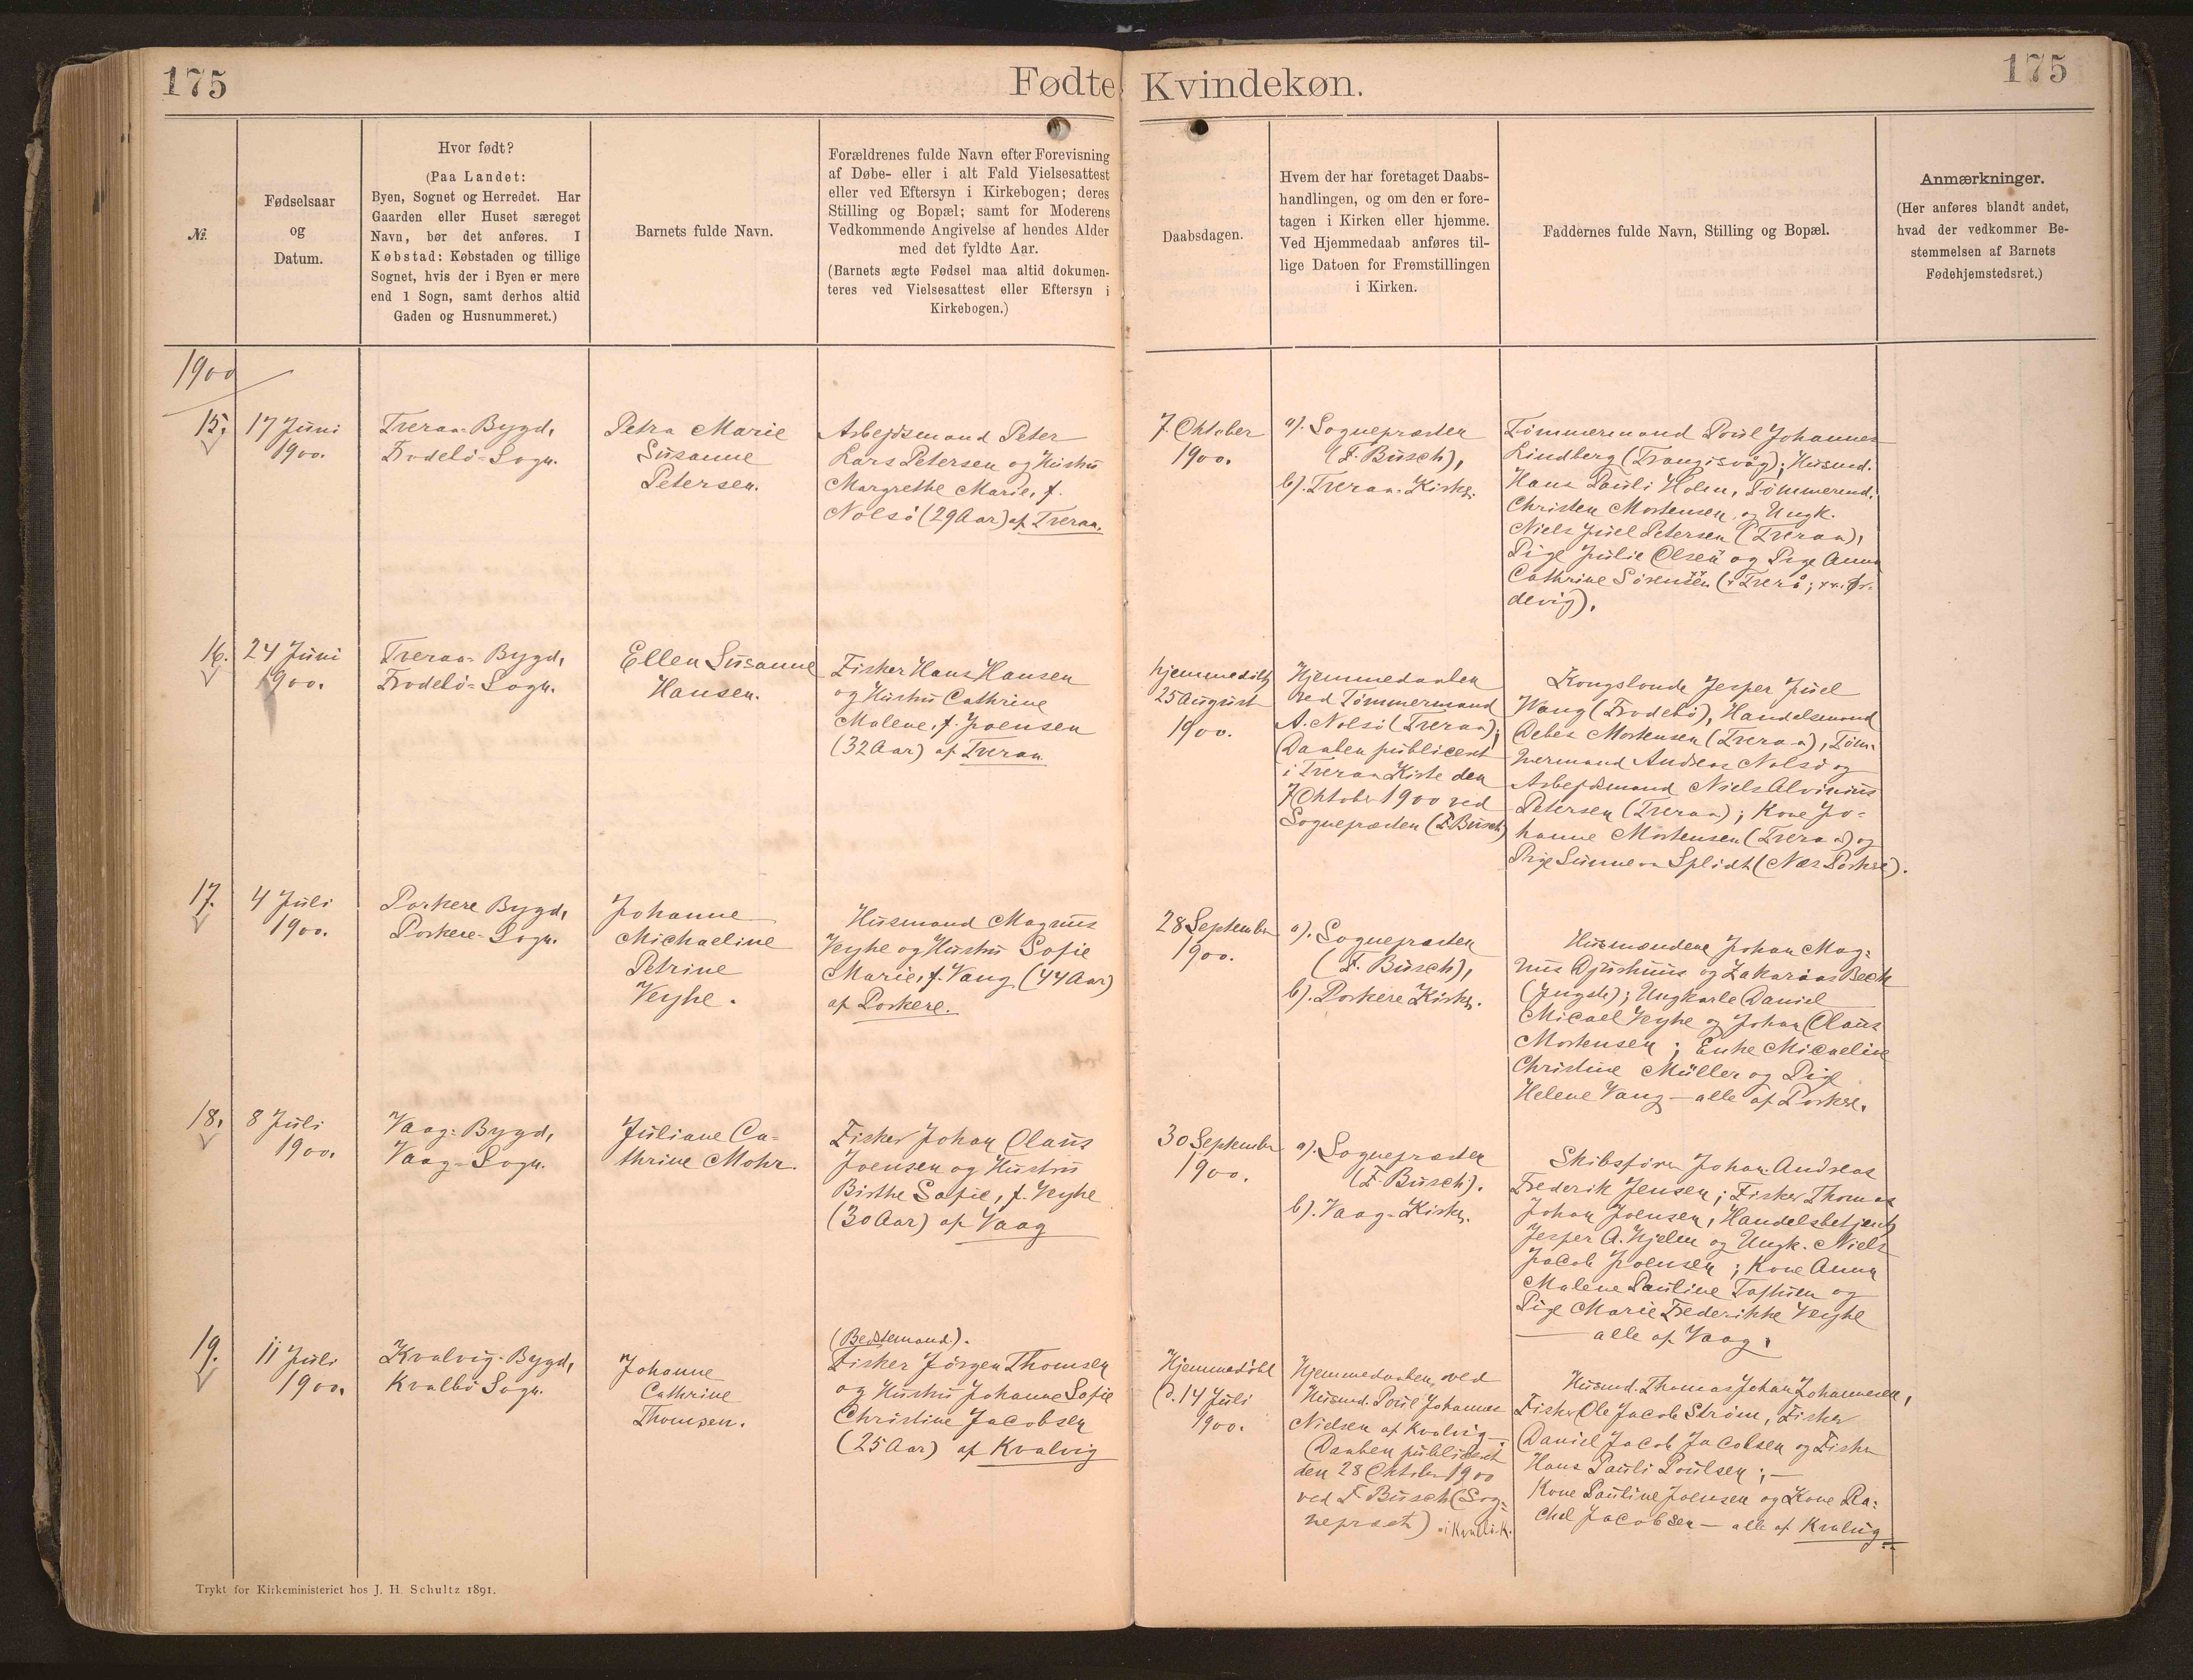 175
Fødte Kvindekøn.
175
№.
Fødselsaar
og
Datum.
Hvor født?
(Paa Landet:
Byen, Sognet og Herredet. Har
Gaarden eller Huset særeget
Navn, bør det anføres. I
Købstad: Købstaden og tillige
Sognet, hvis der i Byen er mere
end 1 Sogn, samt derhos altid
Gaden og Husnummeret.)
Barnets fulde Navn.
Forældrenes fulde Navn efter Forevisning
af Døbe- eller i alt Fald Vielsesattest
eller ved Eftersyn i Kirkebogen; deres
Stilling og Bopæl; samt for Moderens
Vedkommende Angivelse af hendes Alder
med det fyldte Aar.
(Barnets ægte Fødsel maa altid dokumen-
teres ved Vielsesattest eller Eftersyn i
Kirkebogen.)
Daabsdagen.
Hvem der har foretaget Daabs-
handlingen, og om den er fore-
tagen i Kirken eller hjemme.
Ved Hjemmedaab anføres til-
lige Datoen for Fremstillingen
i Kirken.
Faddernes fulde Navn, Stilling og Bopæl.
Anmærkninger.
(Her anføres blandt andet,
hvad der vedkommer Be-
stemmelsen af Barnets
Fødehjemstedsret.)
1900
15.
17 Juni
1900.
Tveraa-Bygd,
Frodebø-Sogn.
Petra Marie
Susanne
Petersen.
Arbejdsmand Peter
Lars Petersen og Hustru
Margrethe Marie, f.
Nolsø (29 Aar) af Tveraa.
7 Oktober
1900.
a). Sognepræsten
(F. Busch),
b). Tveraa-Kirke.
Tømmermand Poul Johannes
Lindberg (Trangisvåg); Husmd.
Hans Pauli Holm, Tømmermd.
Christen Mortensen, og Ungk.
Niels Juel Petersen (Tveraa),
Pige Julie Olsen og Pige Anna
Cathrine Sørensen (Tverå;
devig).
16.
24 Juni
1900.
Tveraa-Bygd,
Frodebø-Sogn.
Ellen Susanne
Hansen.
Fisker Hans Hansen
og Hustru Cathrine
Malene, f. Joensen
(32 Aar) af Tveraa
hjemmedøbt
25 August
1900.
Hjemmedaaben
ved Tømmermand
A. Nolsø (Tveraa);
Daaben publiceret
i Tveraa Kirke den
7 Oktober 1900 ved
Sognepræsten (F. Busch)
Kongsbonde Jesper Juel
Wang (Frodebø), Handelsmand
Debes Mortensen (Tveraa), Tøm-
mermand Andreas Nolsø og
Arbejdsmand Niels Alvinius
Petersen (Tveraa); Kone Jo-
hanne Mortensen (Tveraa) og
Pige Sunneva Splidt (Næs Porkere).
17.
4 Juli
1900.
Porkere Bygd,
Porkere-Sogn.
Johanne
Michaeline
Petrine
Vejhe.
Husmand Magnus
Vejhe og Hustru Sofie
Marie, f. Vang (44 Aar)
af Porkere.
28 September
1900.
a). Sognepræsten
(F. Busch),
b). Porkere Kirke.
Husmændene Johan Mag-
nus Djurhuus og Zakarias Bech
(Yngste); Ungkarle Daniel
Micael Vejhe og Johan Olaus
Mortensen; Enke Micaeline
Christine Müller og Pige
Helene Vang — alle af Porkere.
18.
8 Juli
1900.
Vaag-Bygd,
Vaag-Sogn.
Juliane Ca-
thrine Mohr.
Fisker Johan Olaus
Joensen og Hustru
Birthe Sofie, f. Vejhe
(30 Aar) af Vaag
30 September
1900.
a). Sognepræsten
(F. Busch).
b). Vaag-Kirke.
Skibsfører Johan Andreas
Frederik Jensen; Fisker Thomas
Johan Joensen, Handelsbetjent
Jesper A. Hjelm og Ungk. Niels
Jacob Joensen; Kone Anna
Malene Pauline Tafhuen og
Pige Marie Frederikke Vejhe
— alle af Vaag.
19.
11 Juli
1900.
Kvalvig-Bygd,
Kvalbø Sogn.
Johanne
Cathrine
Thomsen.
(Bedstemand).
Fisker Jørgen Thomsen
og Hustru Johanne Sofie
Christine Jacobsen
(25 Aar) af Kvalvig
Hjemmedøbt
d. 14 Juli
1900.
Hjemmedaaben, ved
Husmd. Poul Johannes
Nielsen af Kvalvig—;
Daaben publiceret
den 28 Oktober 1900
ved F. Busch (Sog-
nepræst) i Kvalb. K.
Husmd. Thomas Johan Johannesen,
Fisker Ole Jacob Strøm, Fisker
Daniel Jacob Jacobsen og Fisker
Hans Pauli Poulsen; —
Kone Pauline Joensen og Kone Ra-
chel Jacobsen — alle af Kvalvig
Trykt for Kirkeministeriet hos J. H. Schultz 1891.